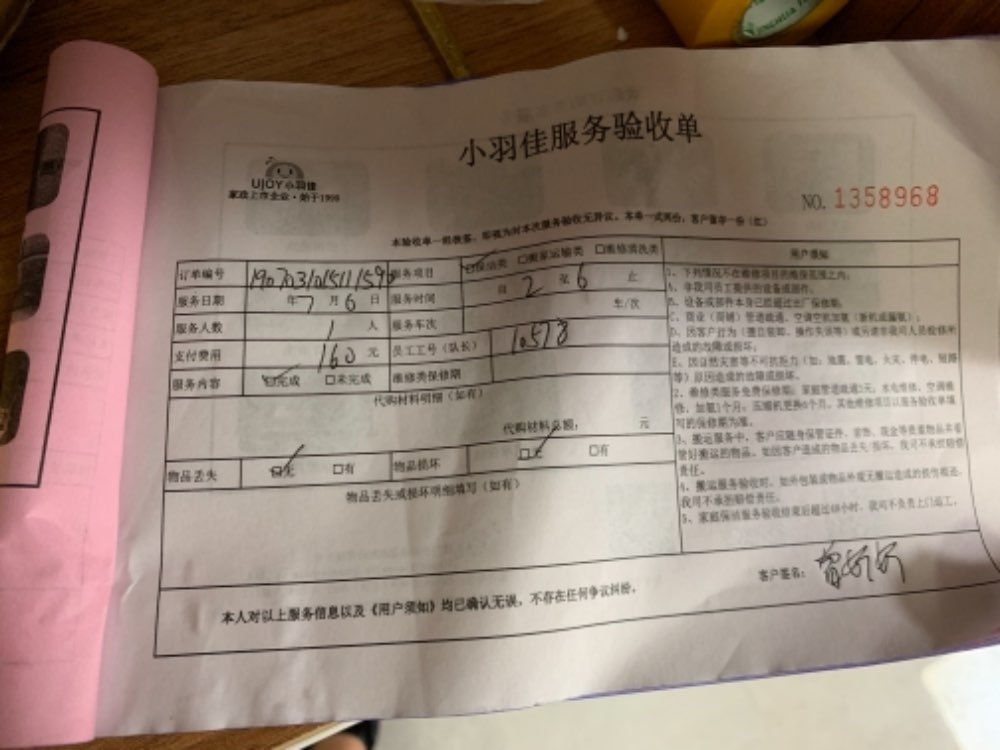 小羽佳服务验收单
UJOY小羽佳
家政上市企业·始于1998
NO. 1358968
本验收单一经签署，即视为对本次服务验收无异议，本单一式两份，客户留存一份（红）
订单编号 服务项目 保洁类 □搬家运输类 □维修清洗类
服务日期 年7月6日 服务时间 自 2 至 6 止
服务人数 1 人 服务车次 车/次
支付费用 160 元 员工工号（队长） 10518
服务内容 ☑完成 □未完成 维修类保修期
代购材料明细（如有）
代购材料总额： 元
物品丢失 ☑无 □有 物品损坏 ☑无 □有
物品丢失或损坏明细填写（如有）
用户须知
1、下列情况不在维修项目的维保范围之内：
A、非我司员工提供的设备或部件。
B、设备或部件本身已经超过出厂保修期；
C、商业（商铺）管道疏通、空调空机加氨（新机或漏氨）；
D、因客户行为（擅自装卸、操作失误等）或另请非我司人员检修所
造成的故障或损坏；
E、因自然灾害等不可抗拒力（如：地震、雷电、火灾、停电、短路
等）原因造成的故障或损坏。
2、维修类服务免费保修期：家庭管道疏通3天，水电维修、空调维
修、加氨1个月，压缩机更换6个月，其他维修项目以服务验收单填
写的保修期为准。
3、搬运服务中，客户应随身保管证件、首饰、现金等贵重物品并看
管好搬运的物品。如因客户造成的物品丢失/损坏，我司不承担赔偿
责任。
4、搬运服务验收时，如外包装或物品外观无搬运造成的损伤痕迹，
我司不承担赔偿责任。
5、家庭保洁服务验收结束后超过48小时，我司不负责上门返工。
本人对以上服务信息以及《用户须知》均已确认无误，不存在任何争议纠纷。
客户签名：